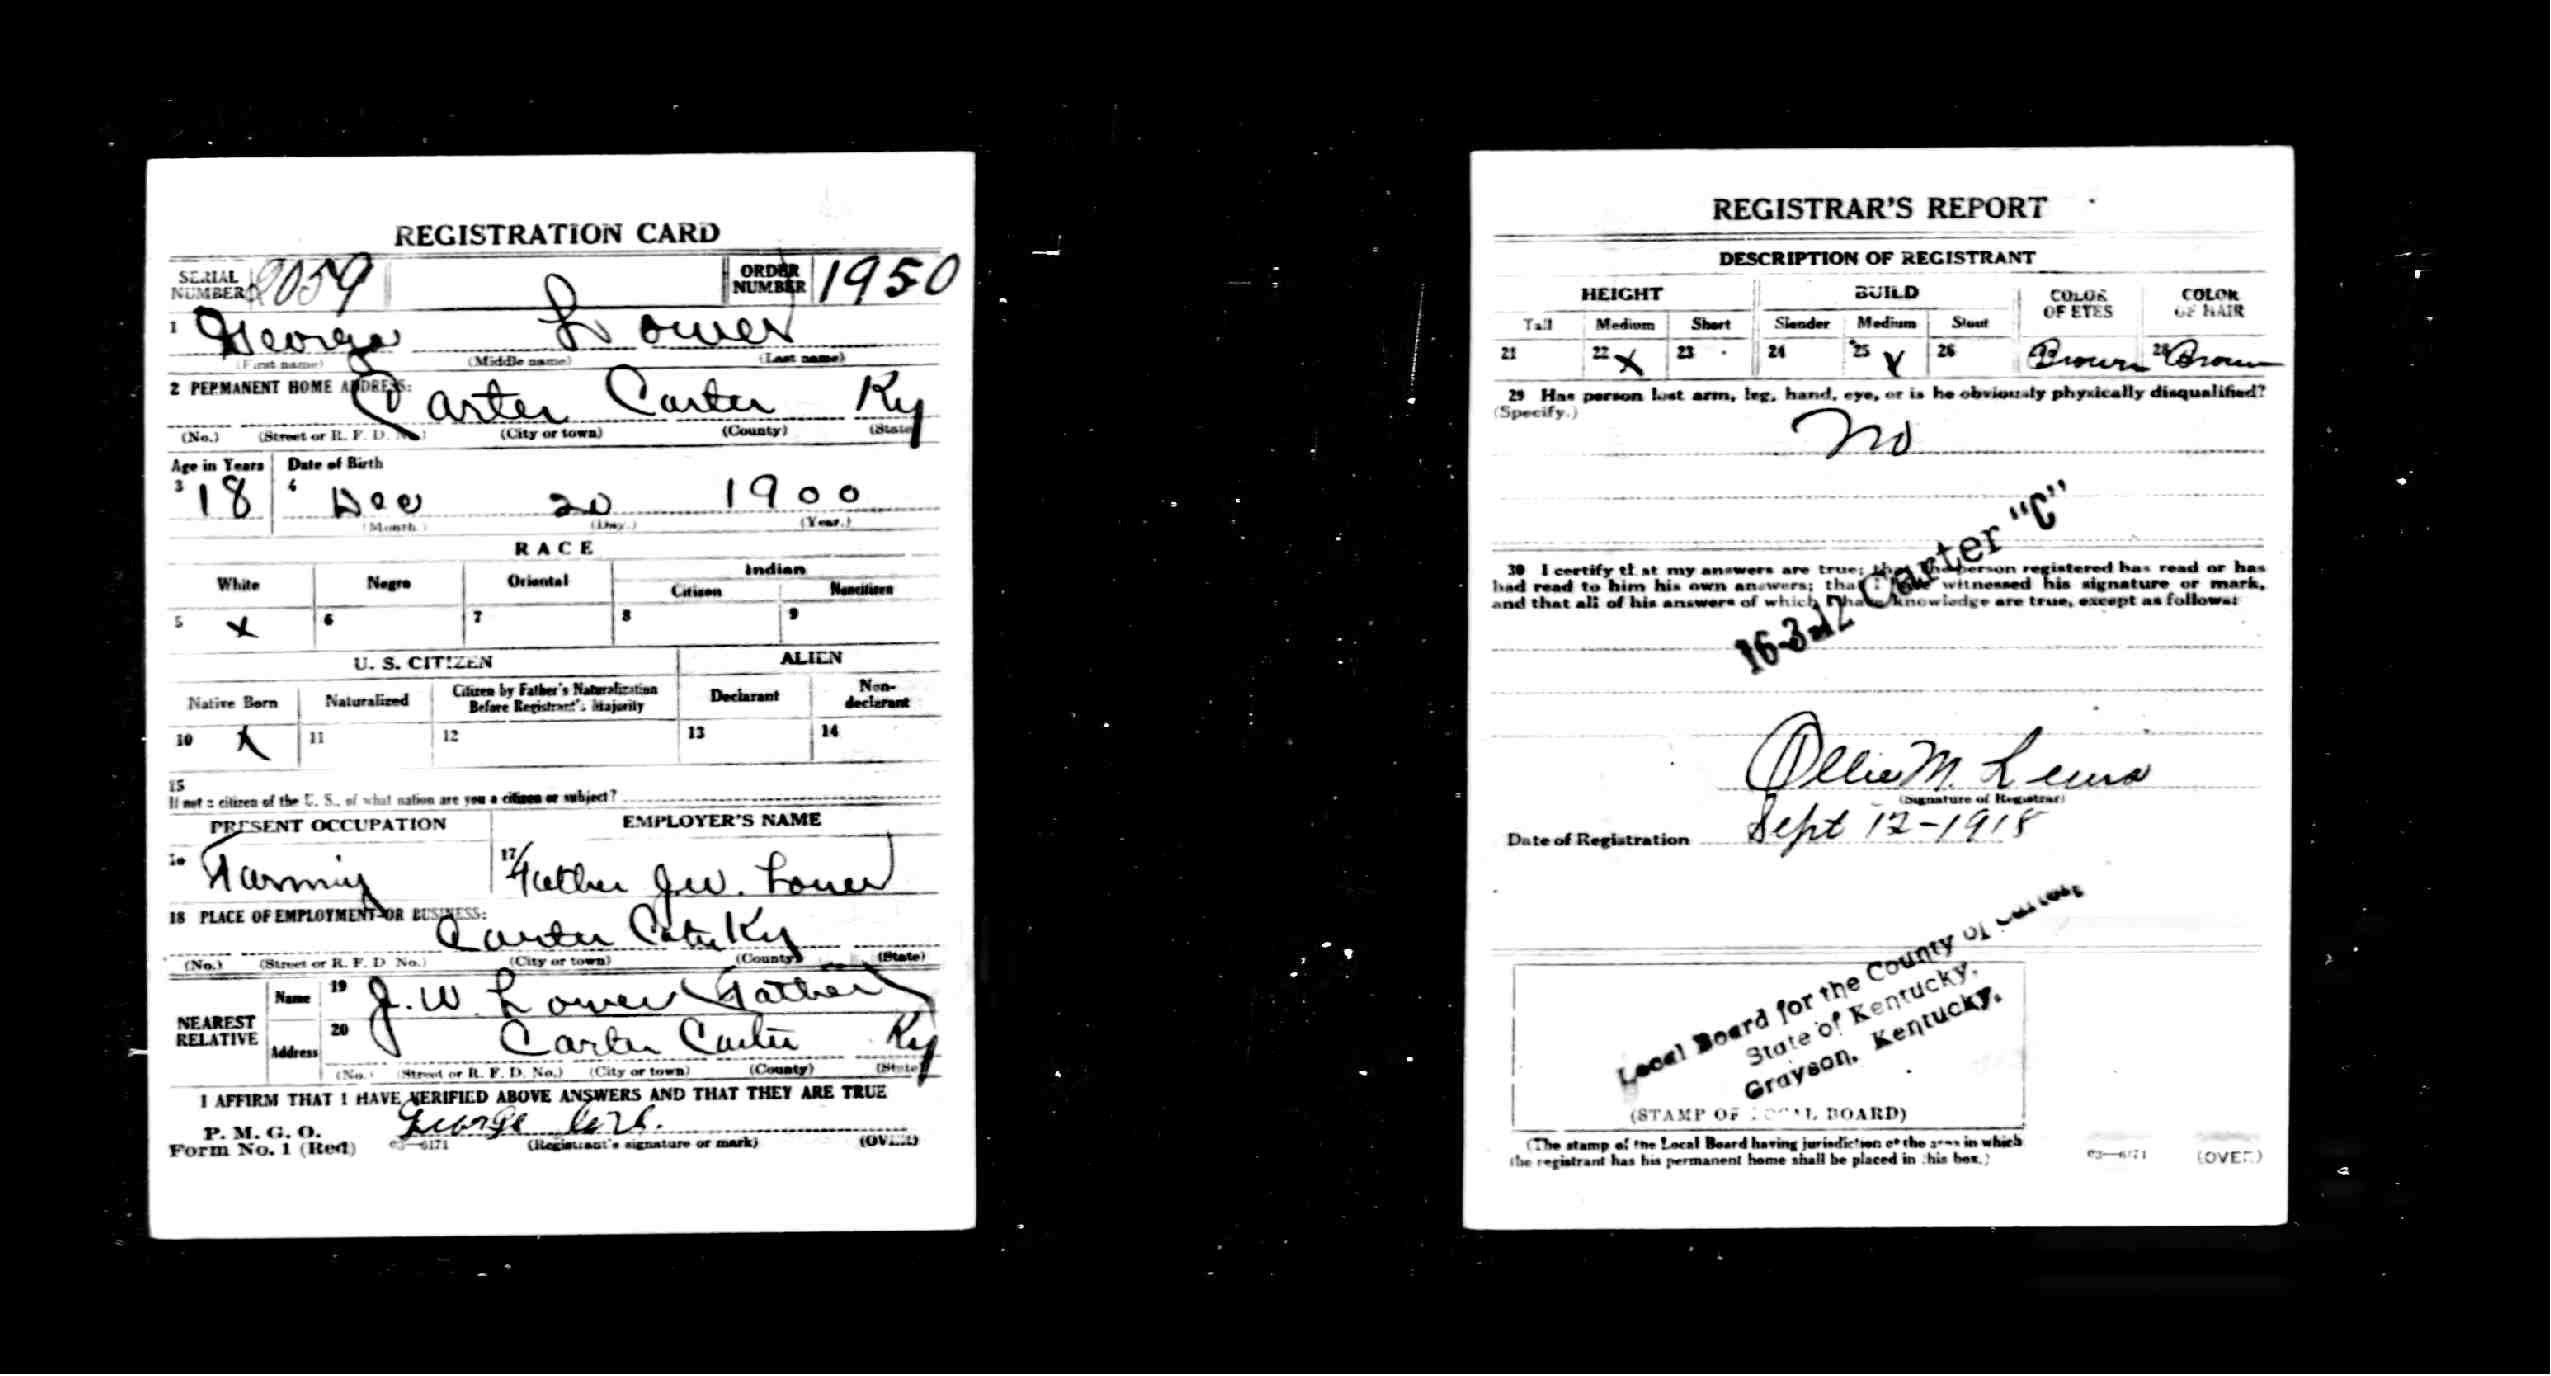 REGISTRATION CARD
SERIAL NUMBER 2059 ORDER NUMBER 1950
1 George Lower
(First name) (Middle name) (Last name)
2 PERMANENT HOME ADDRESS:
Carter Carter Ky
(No.) (Street or R. F. D. No.) (City or town) (County) (State)
Age in Years Date of Birth
3 18 4 Dec 20 1900
(Month.) (Day.) (Year.)
RACE
White Negro Oriental Indian
Citizen Noncitizen
5 X 6 7 8 9
U. S. CITIZEN ALIEN
Native Born Naturalized Citizen by Father's Naturalization Before Registrant's Majority Declarant Non-declarant
10 X 11 12 13 14
15
If not a citizen of the U. S., of what nation are you a citizen or subject?
PRESENT OCCUPATION EMPLOYER'S NAME
16 Farming 17 Father J.W. Lower
18 PLACE OF EMPLOYMENT OR BUSINESS:
Carter Ky
(No.) (Street or R. F. D. No.) (City or town) (County) (State)
NEAREST RELATIVE
Name 19 J. W. Lower Father
Address 20 Carter Carter Ky
(No.) (Street or R. F. D. No.) (City or town) (County) (State)
I AFFIRM THAT I HAVE VERIFIED ABOVE ANSWERS AND THAT THEY ARE TRUE
P. M. G. O.
Form No. 1 (Red) 03—6171 George (Registrant's signature or mark) (OVER)
REGISTRAR'S REPORT
DESCRIPTION OF REGISTRANT
HEIGHT BUILD COLOR OF EYES COLOR OF HAIR
Tall Medium Short Slender Medium Stout
21 22 X 23 24 25 X 26 Brown 28 Brown
29 Has person lost arm, leg, hand, eye, or is he obviously physically disqualified?
(Specify.)
No
30 I certify that my answers are true; that the person registered has read or has
had read to him his own answers; that I have witnessed his signature or mark,
and that all of his answers of which I have knowledge are true, except as follows:
16-3-12 Carter "C"
Ollie M. Lewis
(Signature of Registrar)
Date of Registration Sept 12-1918
Local Board for the County of Carter,
State of Kentucky,
Grayson, Kentucky.
(STAMP OF LOCAL BOARD)
(The stamp of the Local Board having jurisdiction of the area in which
the registrant has his permanent home shall be placed in this box.)
03—6171 (OVER)